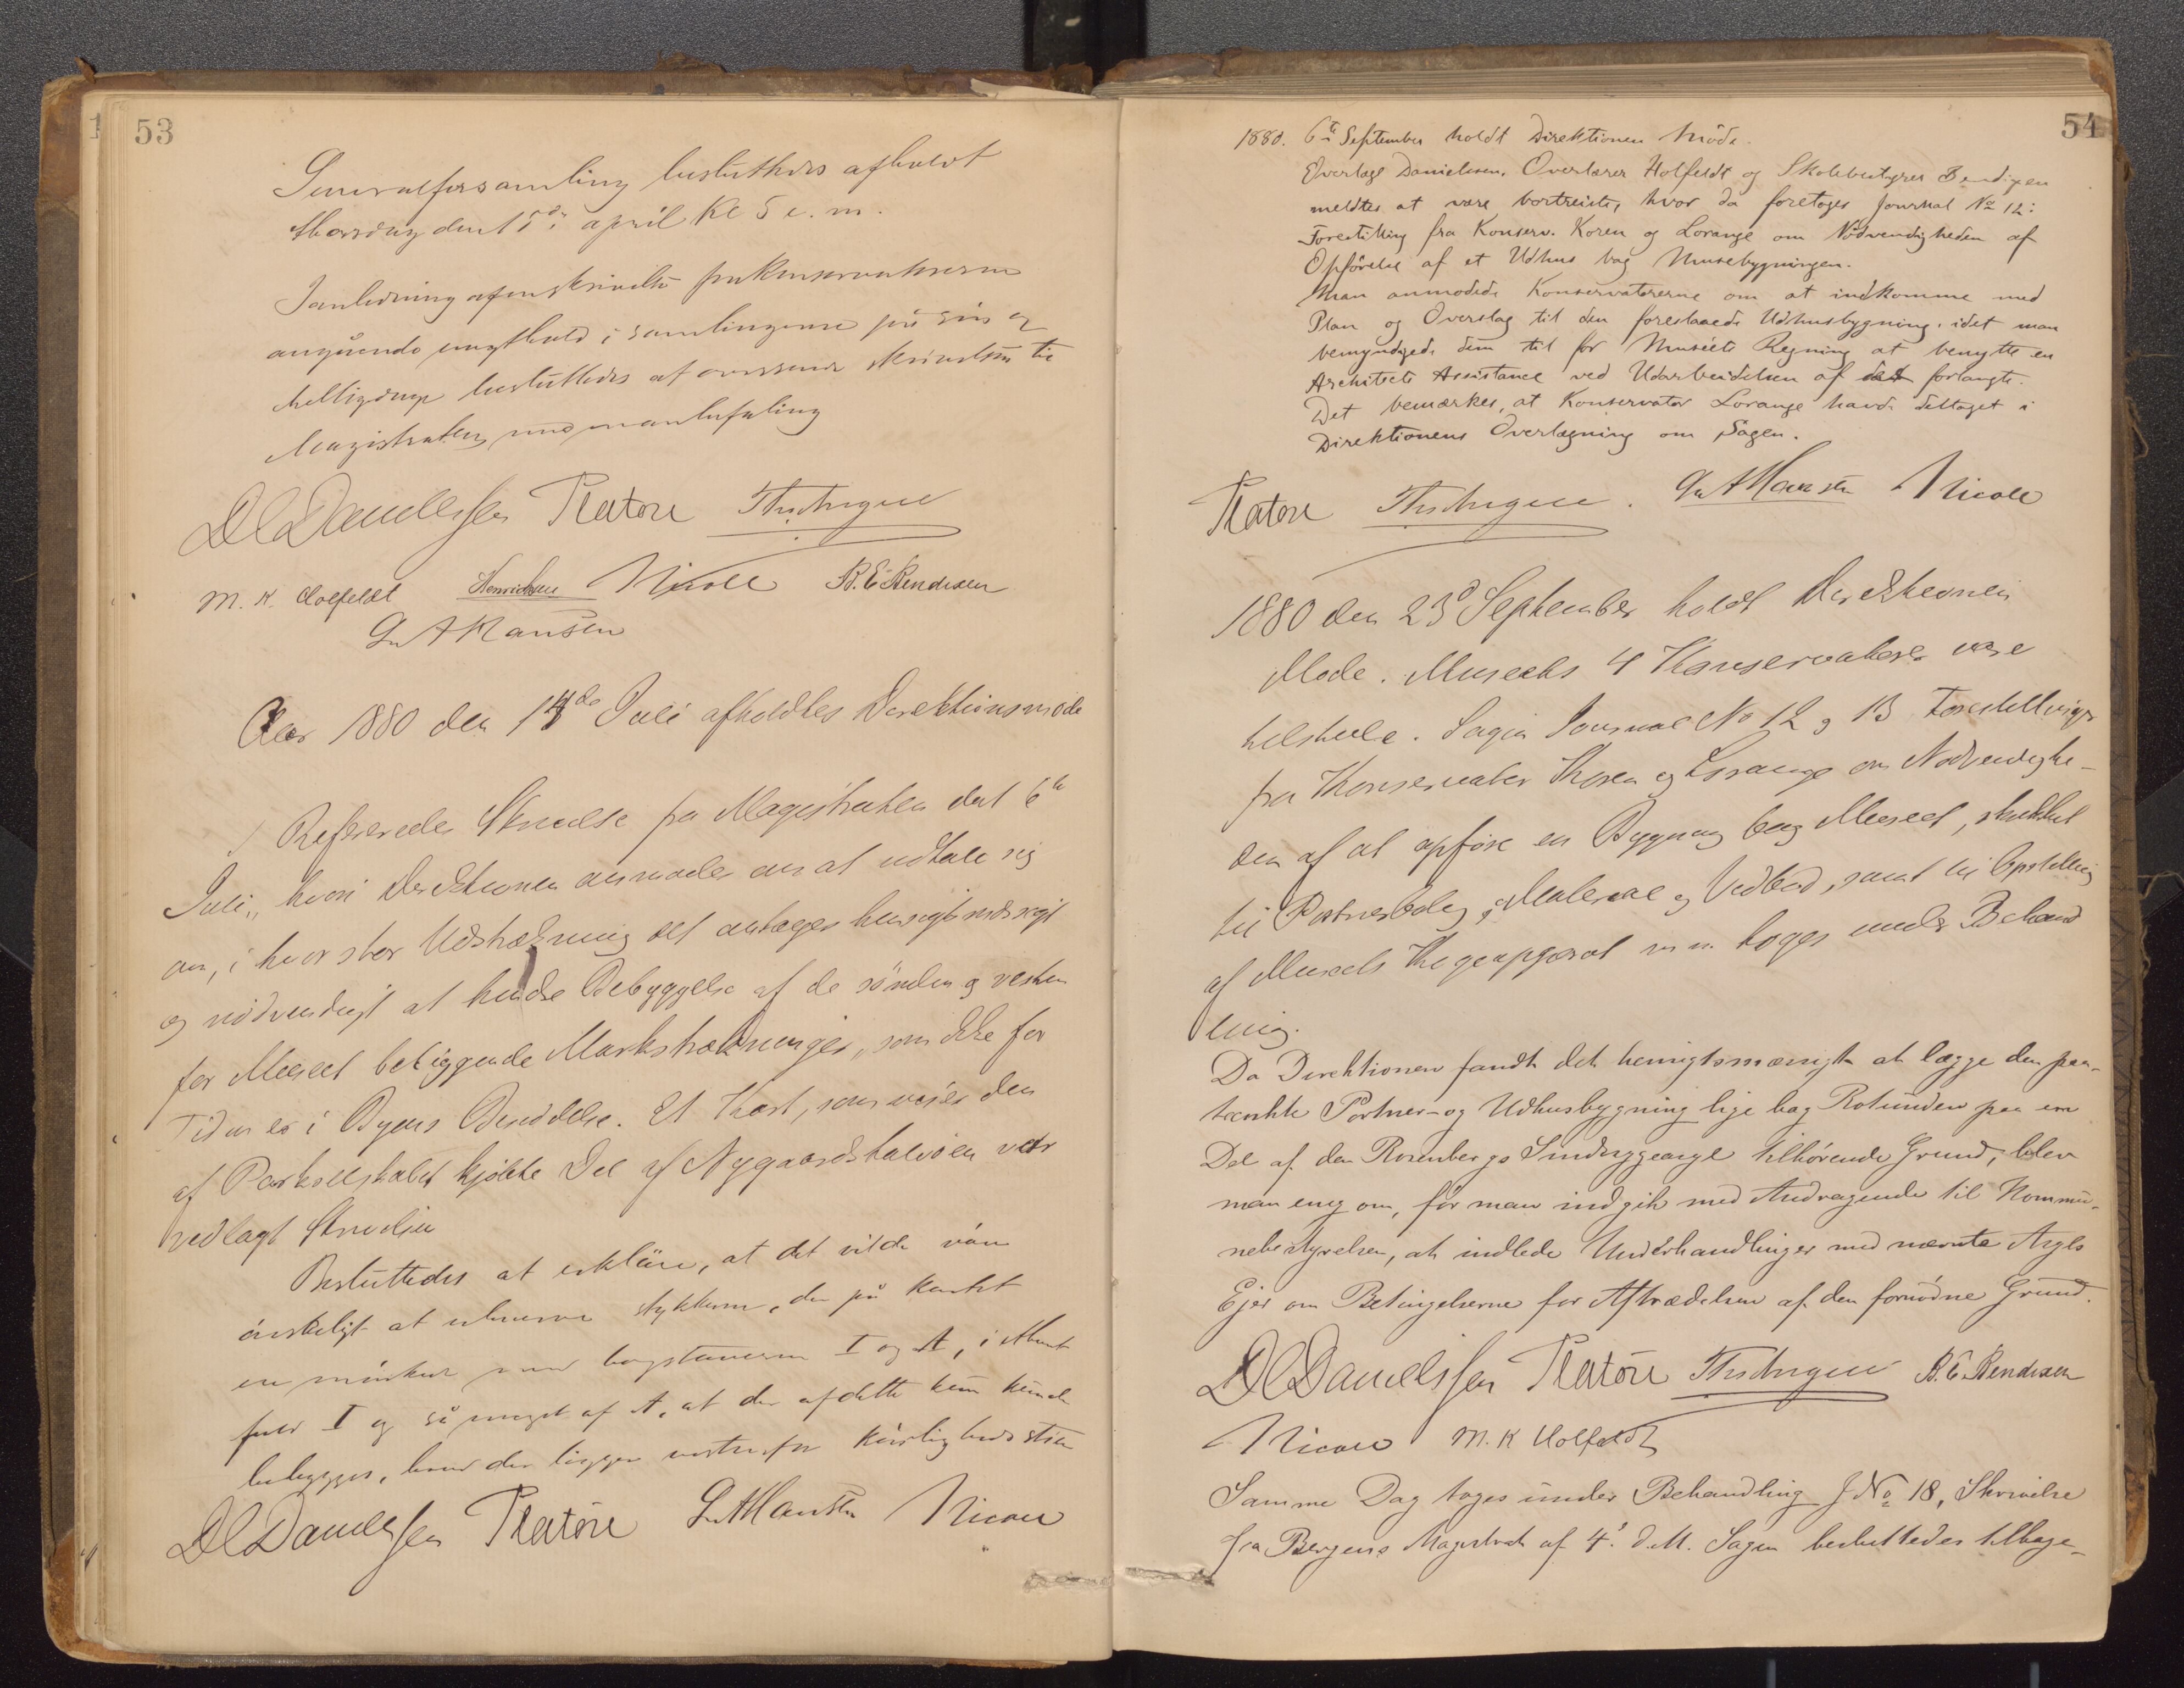 53
Generalforsamling besluttedes afholdt
thorsdag den 15de april Kl 5 e.m.
I anledning af en skrivelse fra Konservatorerne
angående magthold i samlingerne på søn og
helligdage besluttedes at oversende skrivelsen til
Magistraten med anbefaling
DCDanielssen Platou
M. K. Holfeldt Henrichsen Nicoll B. E. Bendixen
G. A Hansen
Aar 1880 den 14de Juli afholdtes Direktionsmøde
Refereredes Skrivelse fra Magistraten dat 6te
Juli, hvori Direktionen anmodes om at udtale sig
om, i hvor stor Udstrækning det antages hensigtsmæssigt
og nødvendigt at hindre Bebyggelse af de sønden og vesten
for Museet beliggende Markstrækninger, som ikke for
Tiden er i Byens Besiddelse. Et Kart, som viser den
af Parkselskabet kjøbte Del af Nygaardshalvøen var
vedlagt Skrivelsen
Besluttedes at erklære, at det vilde være
ønskeligt at erhverve stykkerne, der på kartet
ere mærket med bogstaverne I og A, i
fald I og så meget af A, at der af dette kun kunde
bebygges, hvad der ligger vestenfor Kjærlighedsstien
DCDanielssen Platou G. A Hansen Nicoll
54
1880. 6te September holdt Direktionen Møde.
Overlæge Danielssen, Overlærer Holfeldt og Skolebestyrer Bendixen
meldtes at være bortreiste, hvor da foretoges Journal No 12:
Forestilling fra Konserv. Koren og Lorange om Nødvendigheden af
Opførelse af et Udhus bag Musebygningen.
Man anmodede Konservatorerne om at indkomme med
Plan og Overslag til den foreslaaede Udhusbygning, idet man
bemyndigede dem til for Museets Regning at benytte en
Architects Assistance ved Udarbeidelsen af det forlangte.
Det bemærkes, at Konservator Lorange havde deltaget i
Direktionens Overlægning om Sagen.
Platou G. A Hansen Nicoll
1880 den 23d September holdt Direktionen
Møde. Museets 4 Konservatorer vare
tilstede. Sagen Journal No 12 & 13 Forestillinger
fra Konservator Koren og Lorange om Nødvendighe-
den af at opføre en Bygning bag Museet, skikket
til Portnerbolig, Materiale og Vedbod, samt til Opstilling
af Museets Kogeapparat m. m. toges under Behand
ling.
Da Direktionen fandt det hensigtsmæssigt at lægge den paa-
tænkte Portner- og Udhusbygning lige bag Rotunden paa en
Del af den Rosenbergs Sindssygeasyl tilhørende Grund, blev
man enig om, før man indgik med Andragende til Kommu-
nebestyrelsen, at indlede Underhandlinger med nævnte Asyls
Ejer om Betingelserne for Afstaaelsen af den fornødne Grund.
DCDanielssen Platou B. E. Bendixen
Nicoll M. K Holfeldt
Samme Dag toges under Behandling J No 18, Skrivelse
fra Bergens Magistrat af 4de d. M. Sagen besluttedes tilbage-